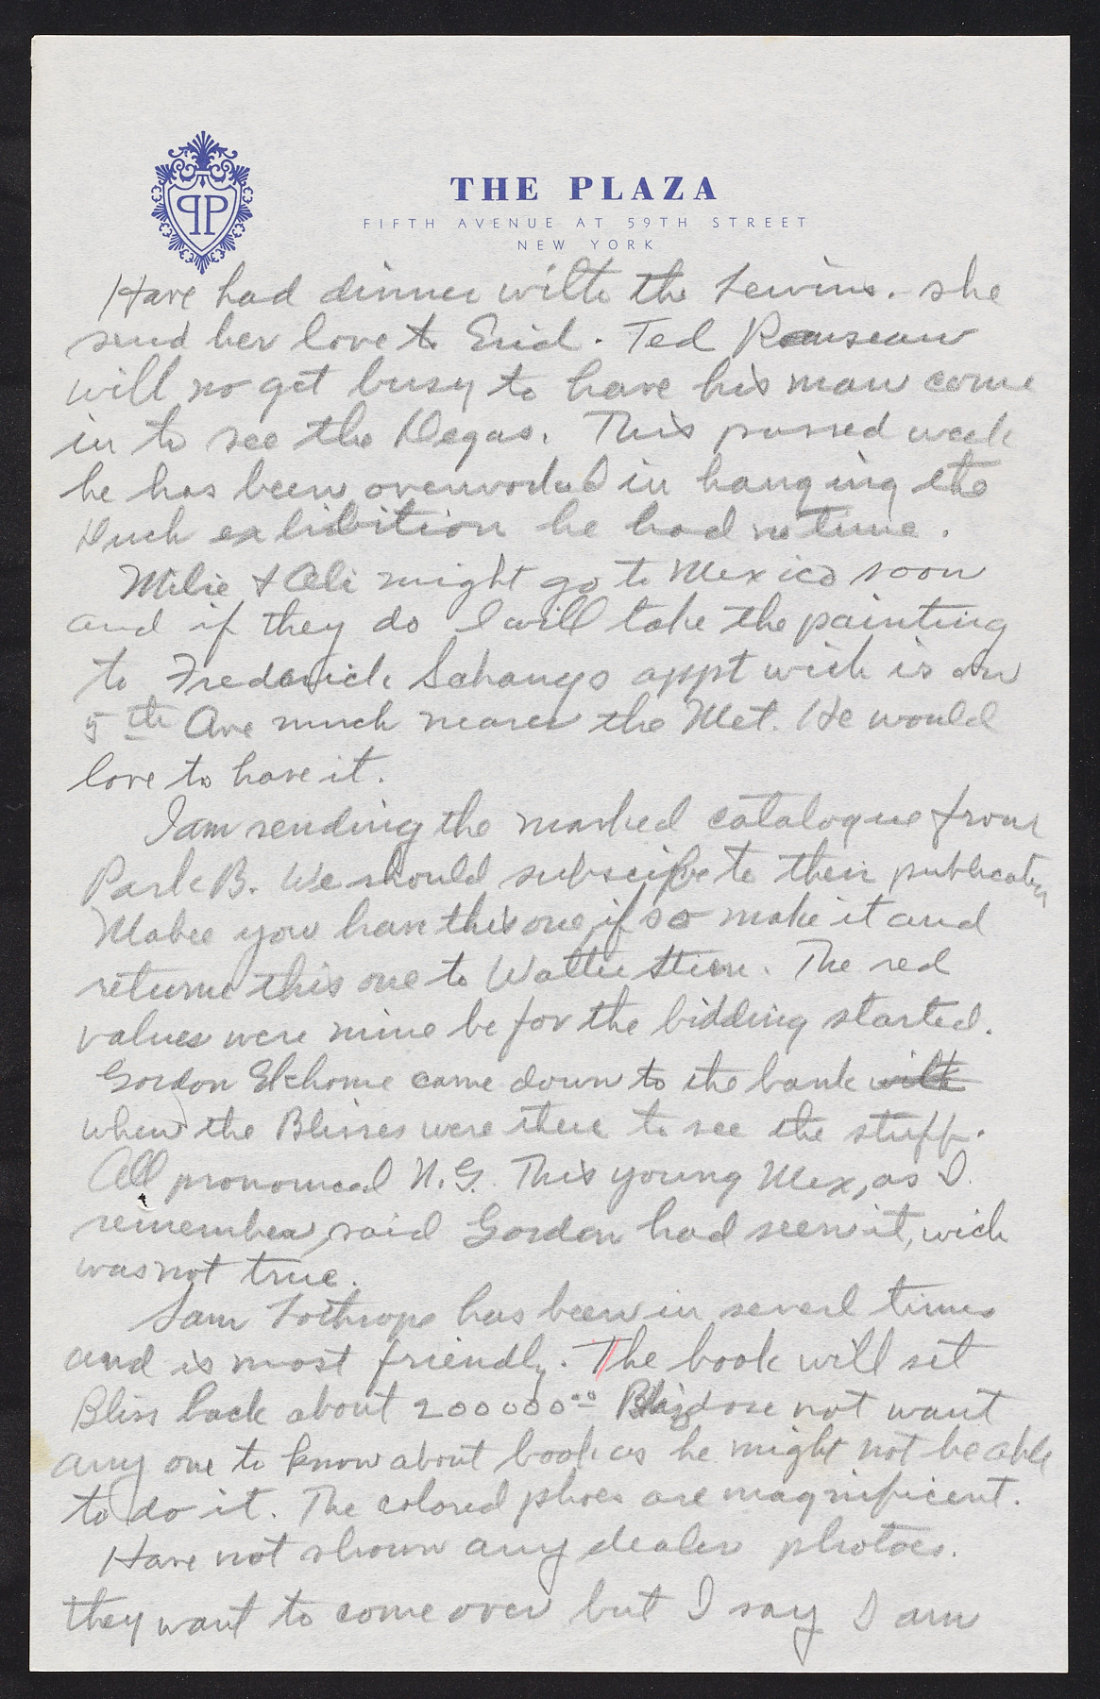 PP
THE PLAZA
FIFTH AVENUE AT 59TH STREET
NEW YORK
Have had dinner with the Lewins. she
send her love to Enid. Ted Rousseau
will no get busy to have his man come
in to see the Degas. This passed week
he has been overworked in hanging the
Duch exhibition he had no time.
Milie & Ali might go to Mexico soon
and if they do I will take the painting
to Frederick appt wich is on
5th Ave much nearer the Met. He would
love to have it.
I am sending the marked catalogue from
Park B. We should subscribe to their publication
Mabee you have this one, if so make it and
returne this one to Walter. The red
values were mine befor the bidding started.
Gordon Ekholme came down to the bank with
when the Blisses were there to see the stuff.
All pronounced N.G. This young Mex, as I
remember, said Gordon had seen it, wich
was not true.
Sam Lothrop has been in severl times
and is most friendly. The book will set
Bliss back about 20000000 dose not want
any one to know about book as he might not be able
to do it. The colored photoes are magnificent.
Have not shown any dealer photoes.
they want to come over but I say I am